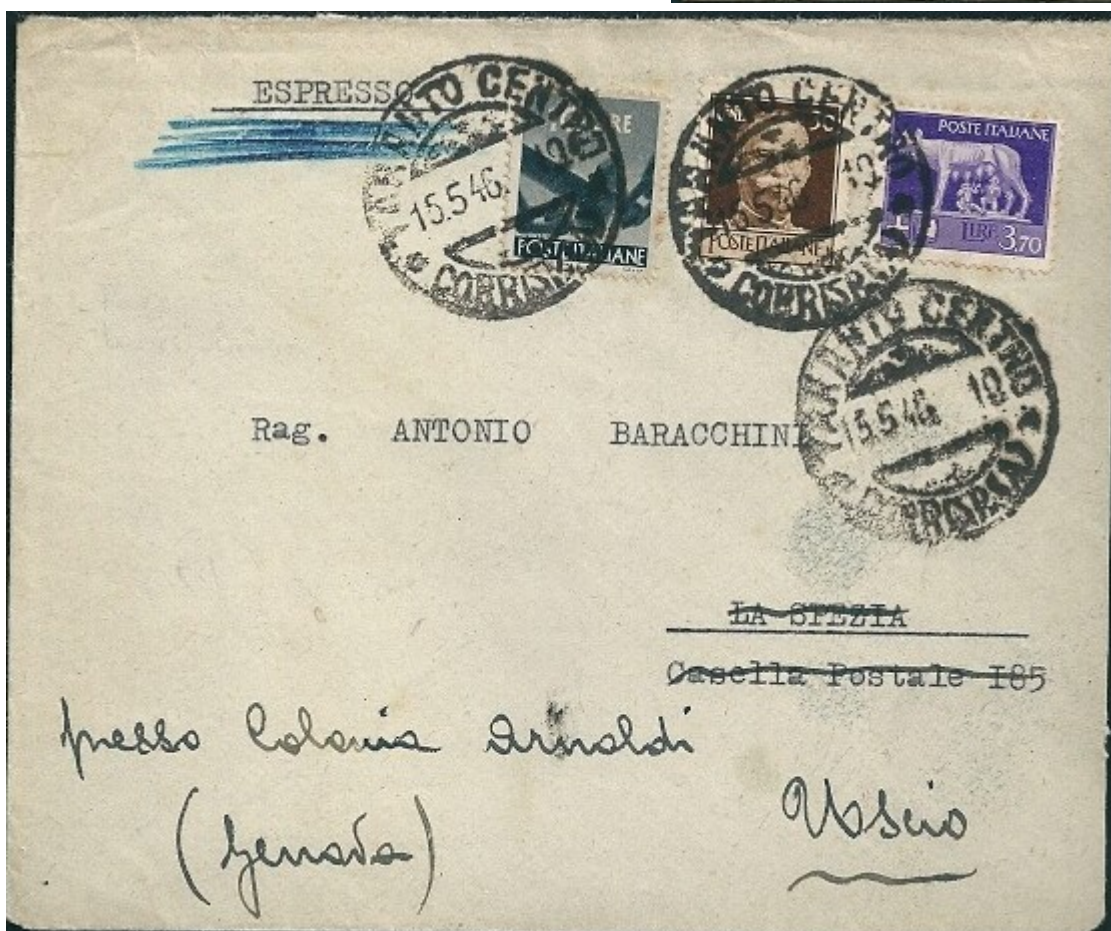 ESPRESSO
TARANTO CENTRO
15.5.46. 19
CORRISP.
LIRE
POSTE ITALIANE
TARANTO CENTRO
15.5.46 19
CORRISP.(A)
30
POSTE ITALIANE
POSTE ITALIANE
LIRE 3,70
TARANTO CENTRO
15.5.46. 19
CORRISP.(A)
Rag. ANTONIO BARACCHINI
LA SPEZIA
Casella Postale I85
presso Colonia Arnaldi
Uscio
(Genova)